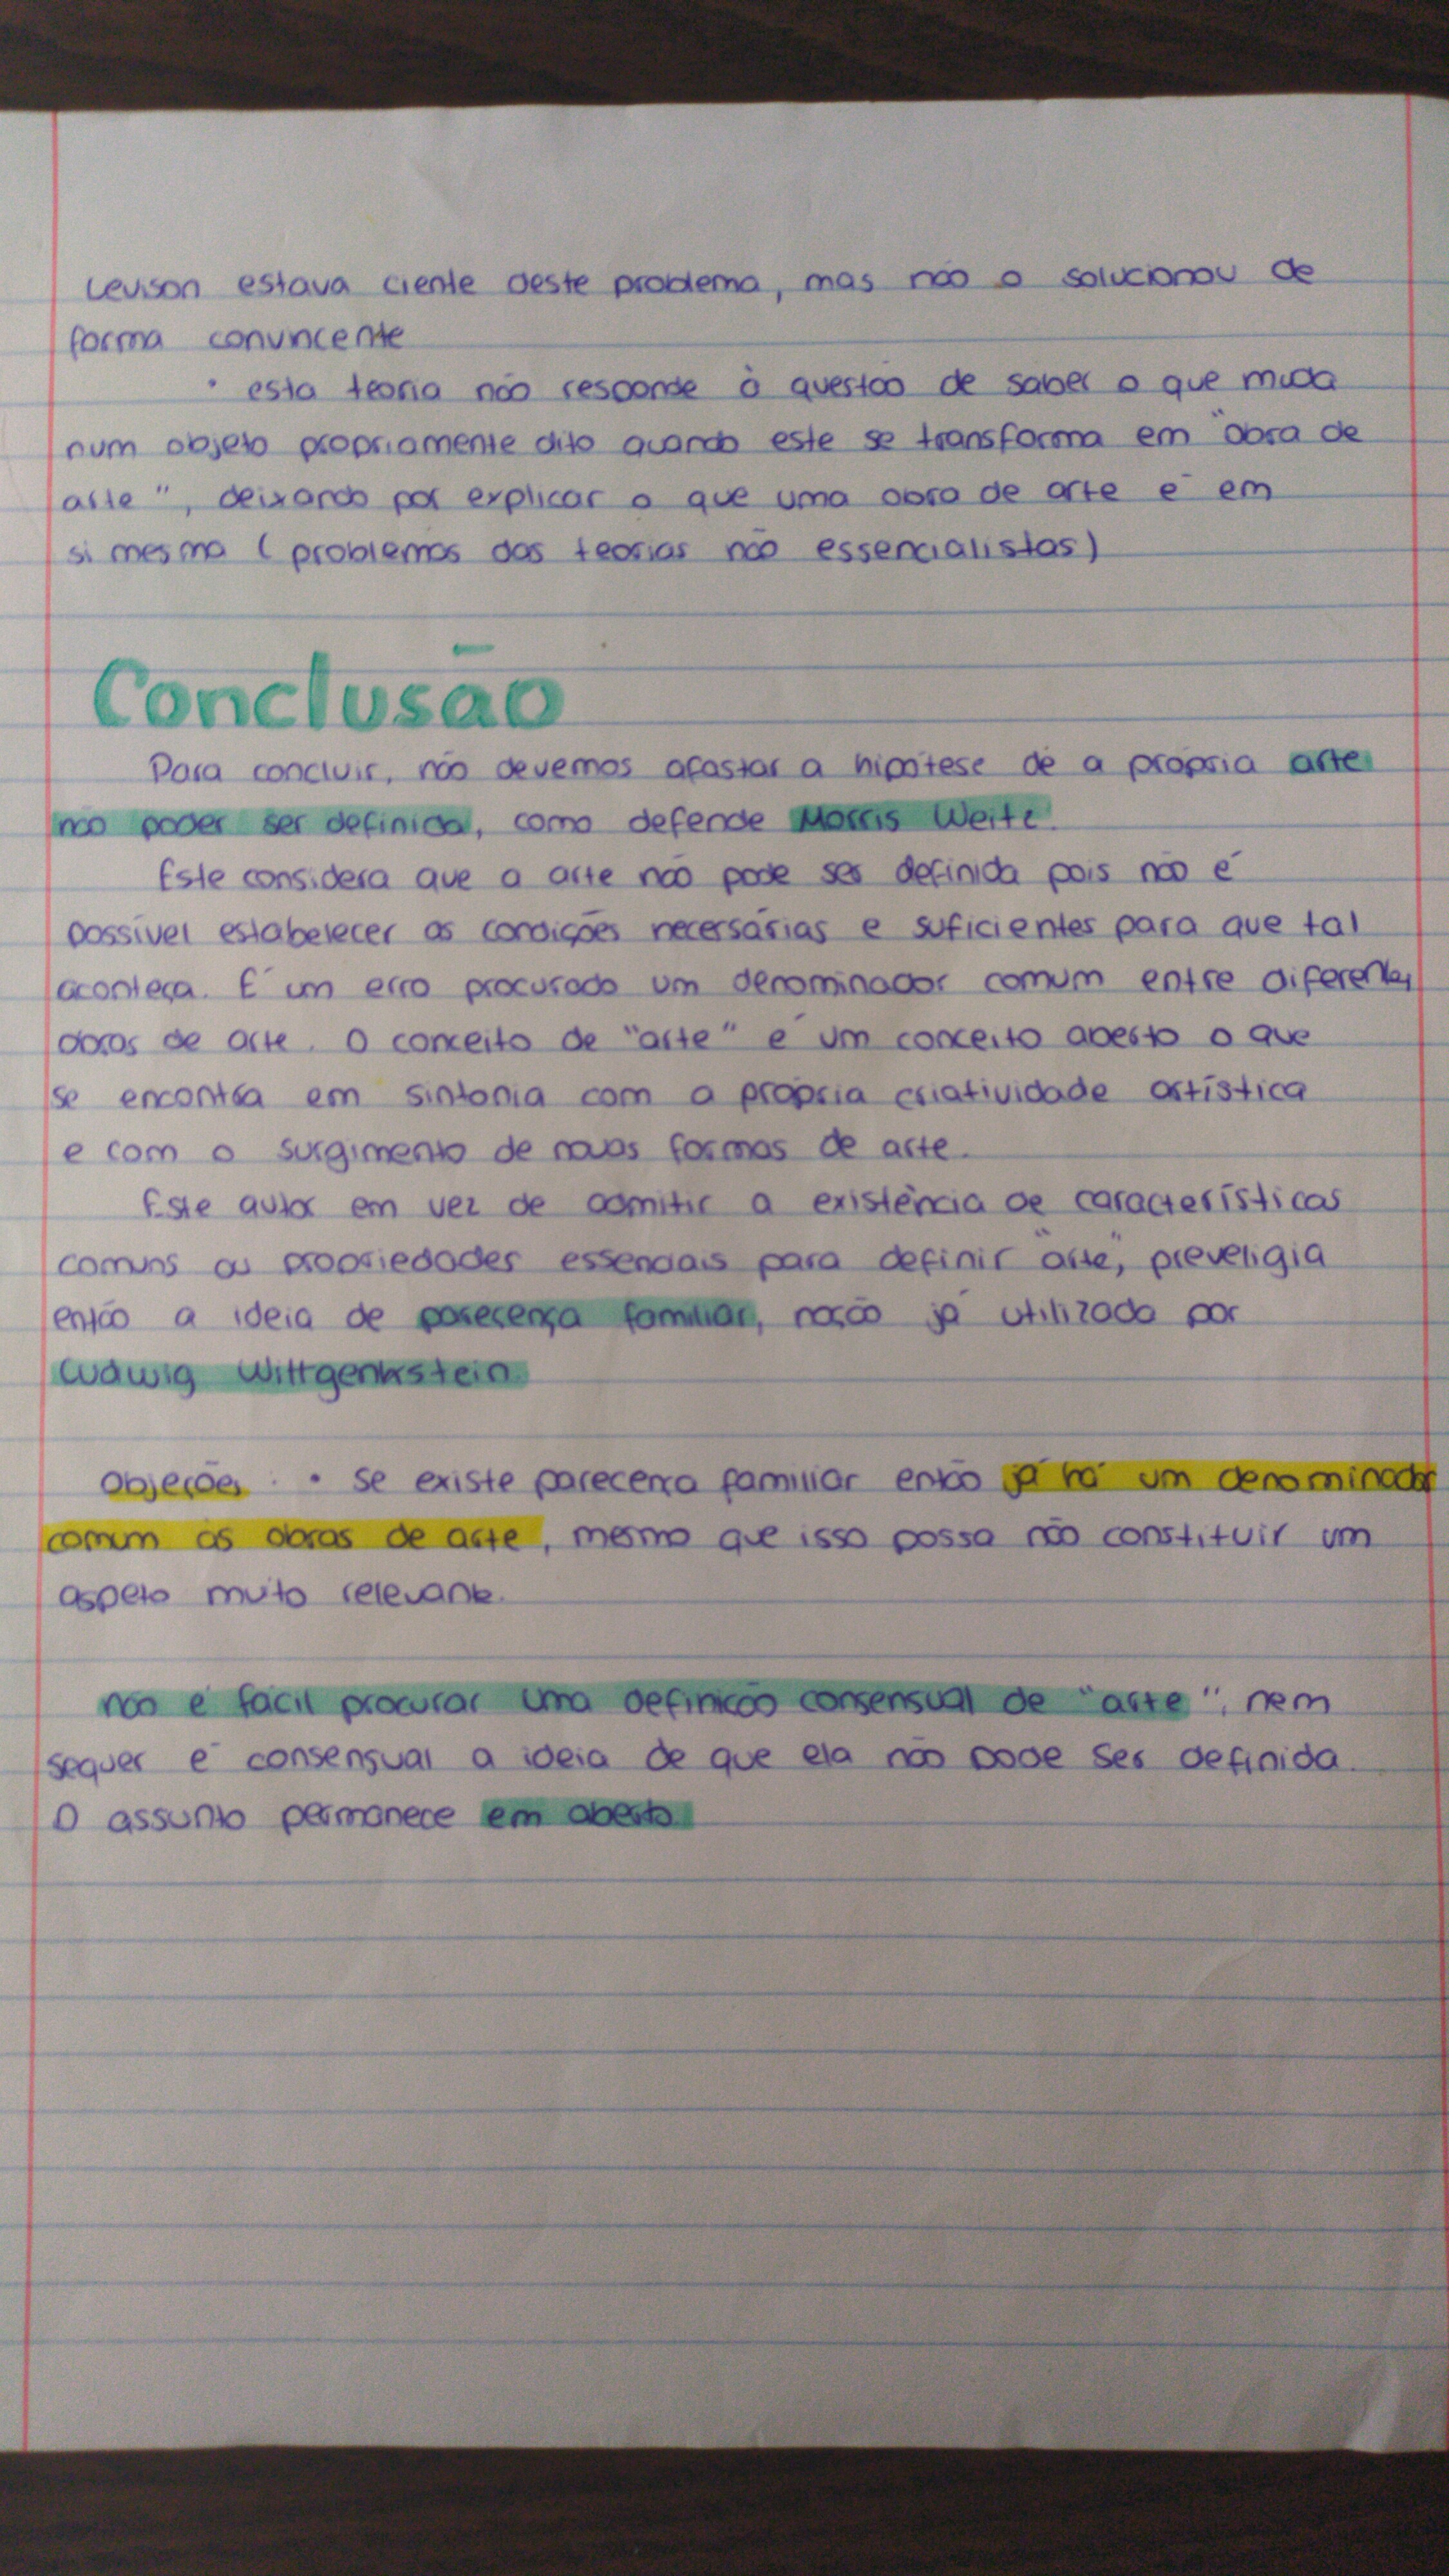 Levison estava ciente deste problema, mas não o solucionou de
forma convincente
• esta teoria não responde à questão de saber o que muda
num objeto propriamente dito quando este se transforma em "obra de
arte", deixando por explicar o que uma obra de arte é em
si mesma (problemas das teorias não essencialistas)
Conclusão
Para concluir, não devemos afastar a hipótese de a própria arte
não poder ser definida, como defende Morris Weitz.
Este considera que a arte não pode ser definida pois não é
possível estabelecer as condições necessárias e suficientes para que tal
aconteça. É um erro procurado um denominador comum entre diferentes
obras de arte. O conceito de "arte" é um conceito aberto o que
se encontra em sintonia com a própria criatividade artística
e com o surgimento de novas formas de arte.
Este autor em vez de admitir a existência de características
comuns ou propriedades essenciais para definir "arte", preveligia
então a ideia de parecença familiar, noção já utilizada por
Ludwig Wittgenstein.
Objeções: • Se existe parecença familiar então já há um denominador
comum às obras de arte, mesmo que isso possa não constituir um
aspeto muito relevante.
não é fácil procurar uma definição consensual de "arte", nem
sequer é consensual a ideia de que ela não pode ser definida.
O assunto permanece em aberto